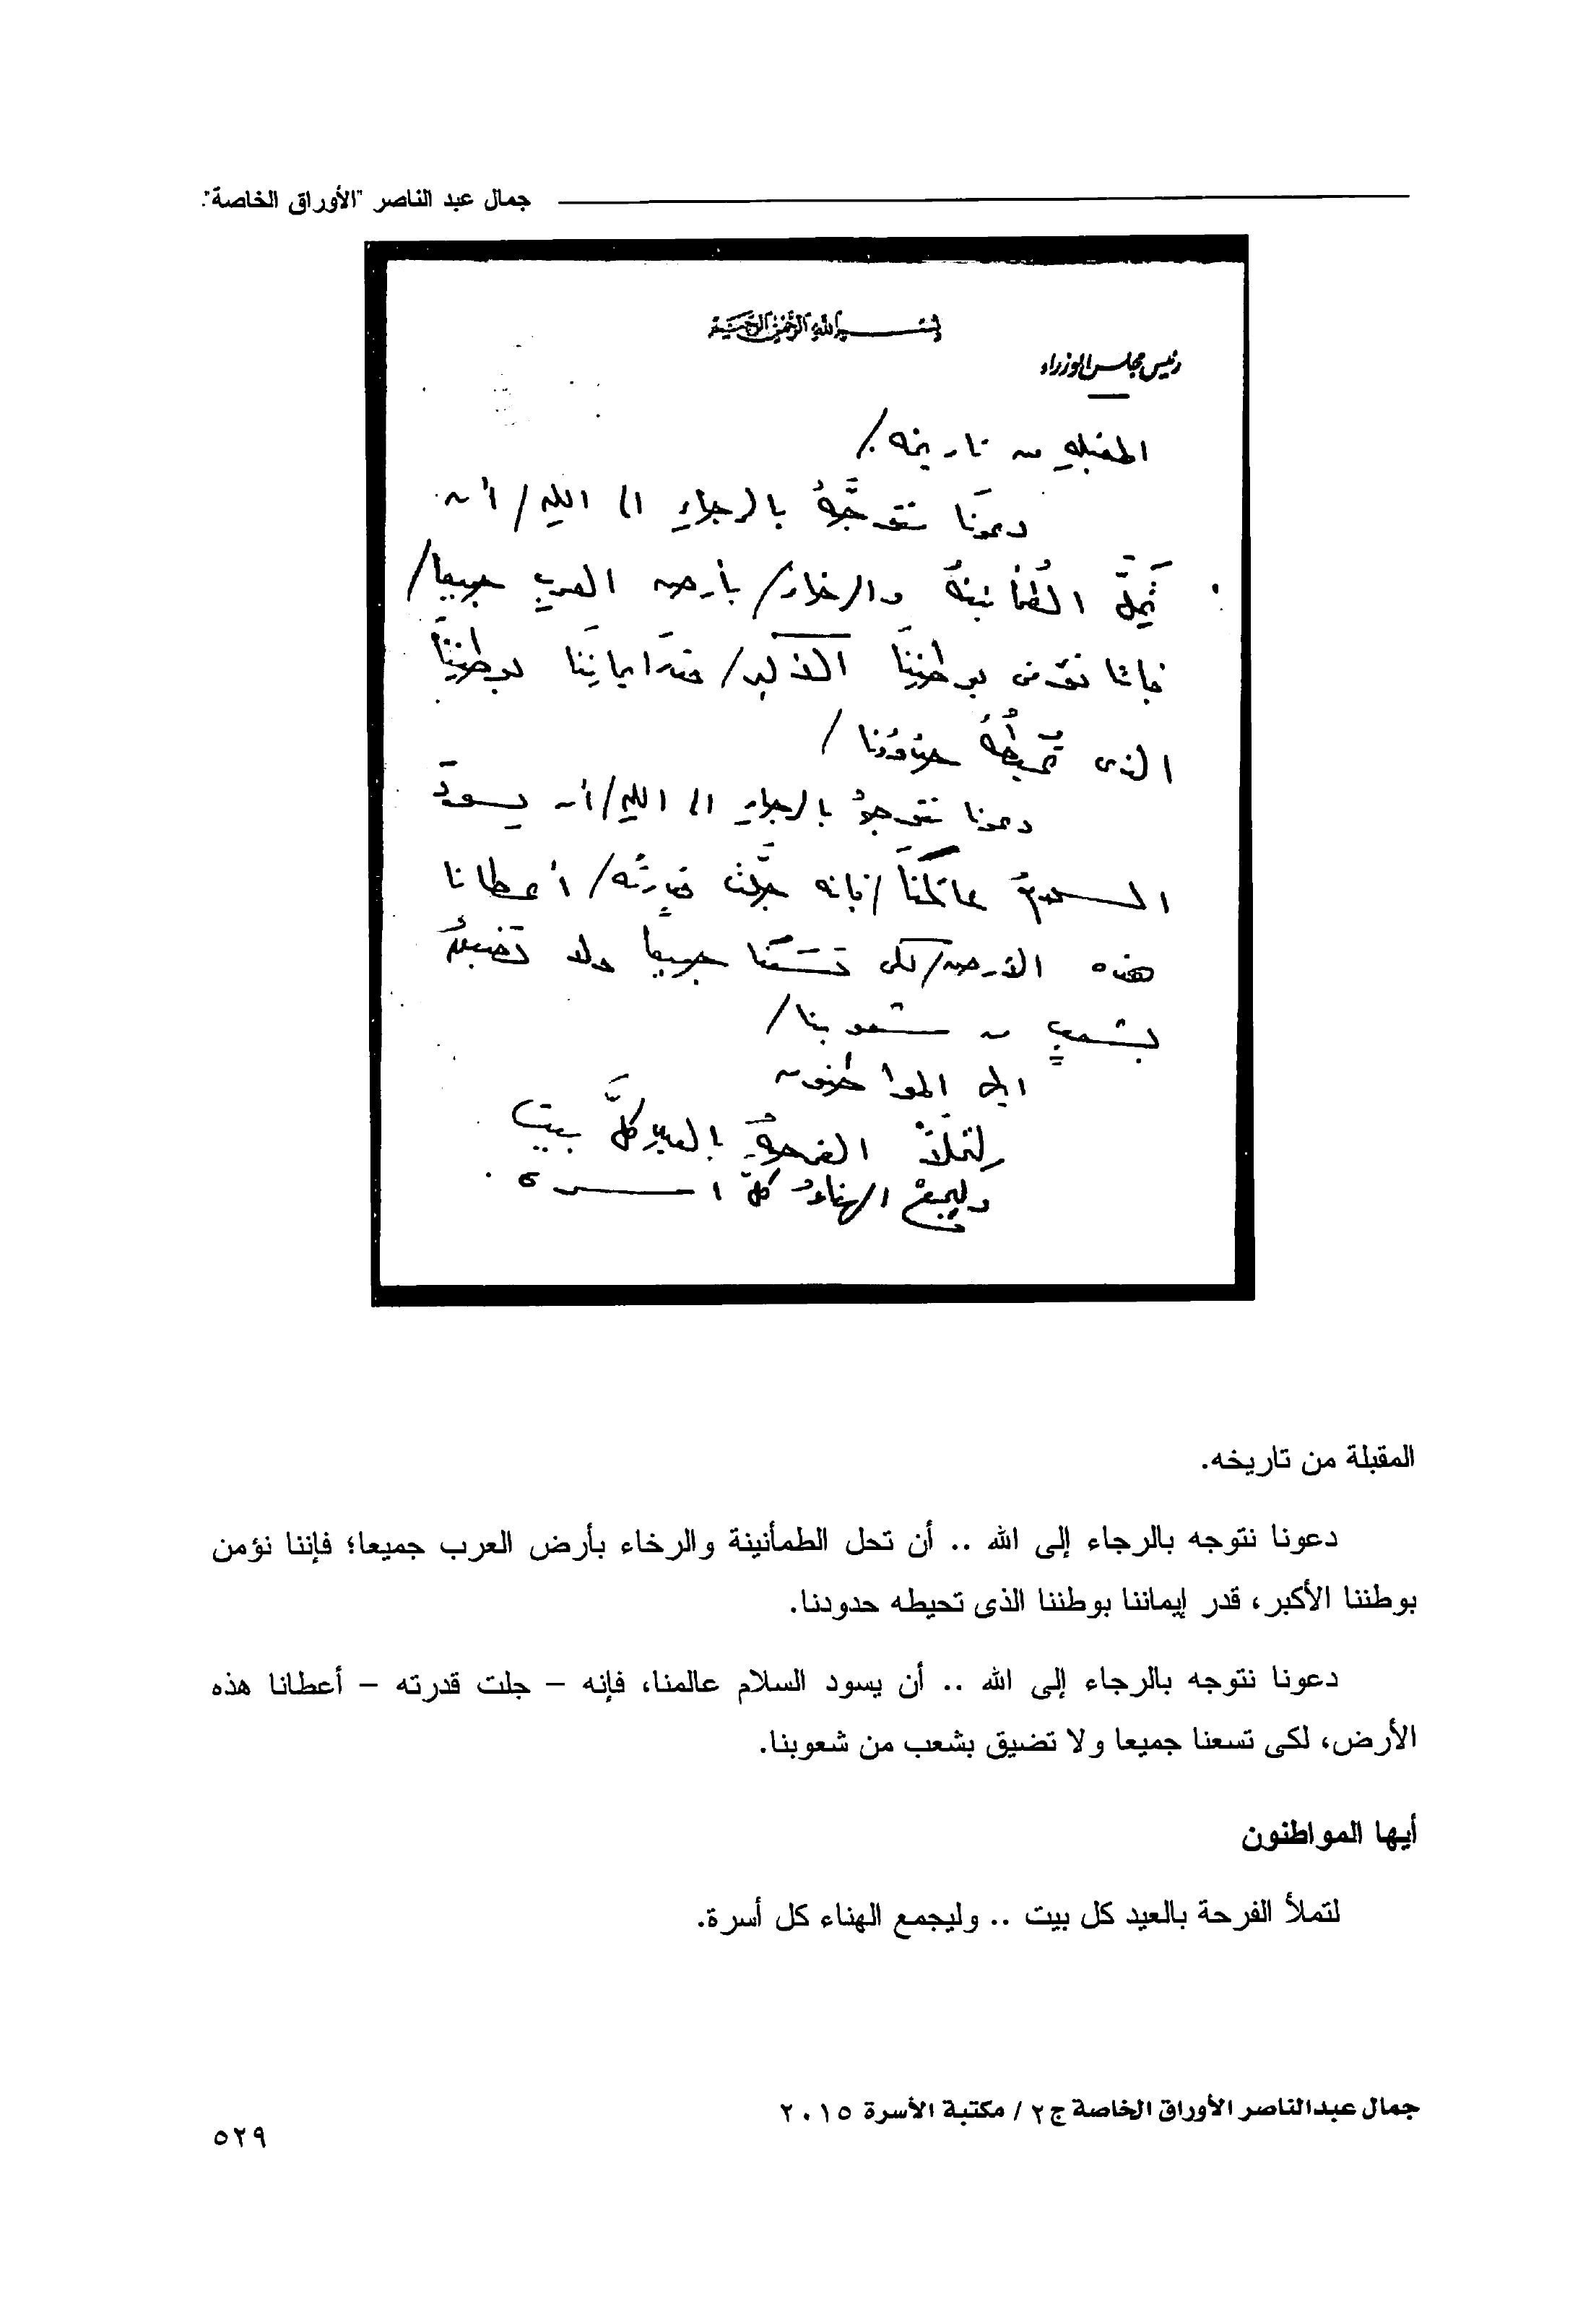 جمال عبد الناصر "الأوراق الخاصة".
بسم الله الرحمن الرحيم
رئيس مجلس الوزراء
المقبله من تاريخه /
دعونَا نتوجَّهُ بالرجاءِ الى اللهِ / أن
تَحِلَّ الطُمأنينهُ والرخاءُ / بأرض العربِ جميعا /
فإننا نؤمن بوطنِنَا الأكبر / قدرَ ايمانِنَا بوطنِنَا
الذى تحيطُهُ حدودُنا /
دعونا نتوجهُ بالرجاءِ الى اللهِ / أن يسودَ
السلامُ عالمَنَا / فإنه جلَّت قدرتُه / أعطانا
هذه الأرض / لكى تَسَعَنا جميعاً ولا تضيقُ
بشعبٍ من شعوبنا /
ايها المواطنون
لتملأْ الفرحةُ بالعيدِ كلَّ بيت
وليجمعْ الهناءُ كلَّ اسره .
المقبلة من تاريخه.
دعونا نتوجه بالرجاء إلى الله .. أن تحل الطمأنينة والرخاء بأرض العرب جميعا؛ فإننا نؤمن
بوطننا الأكبر، قدر إيماننا بوطننا الذى تحيطه حدودنا.
دعونا نتوجه بالرجاء إلى الله .. أن يسود السلام عالمنا، فإنه – جلت قدرته – أعطانا هذه
الأرض، لكى تسعنا جميعا ولا تضيق بشعب من شعوبنا.
أيها المواطنون
لتملأ الفرحة بالعيد كل بيت .. وليجمع الهناء كل أسرة.
جمال عبدالناصر الأوراق الخاصة ج٢ / مكتبة الأسرة ٢٠١٥
٥٢٩